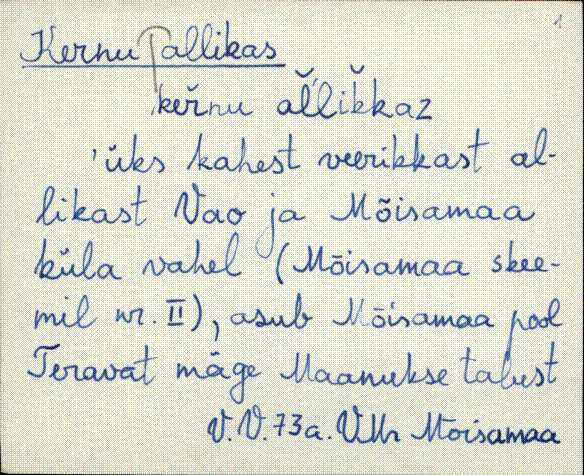 1
Kernu allikas
keřnu al̆lik̆kaz
'üks kahest veerikkast al-
likast Vao ja Mõisamaa
küla vahel (Mõisamaa skee-
mil nr. II), asub Mõisamaa pool
Teravat mäge Maanukse talust
V.V. 73a. VMr Mõisamaa